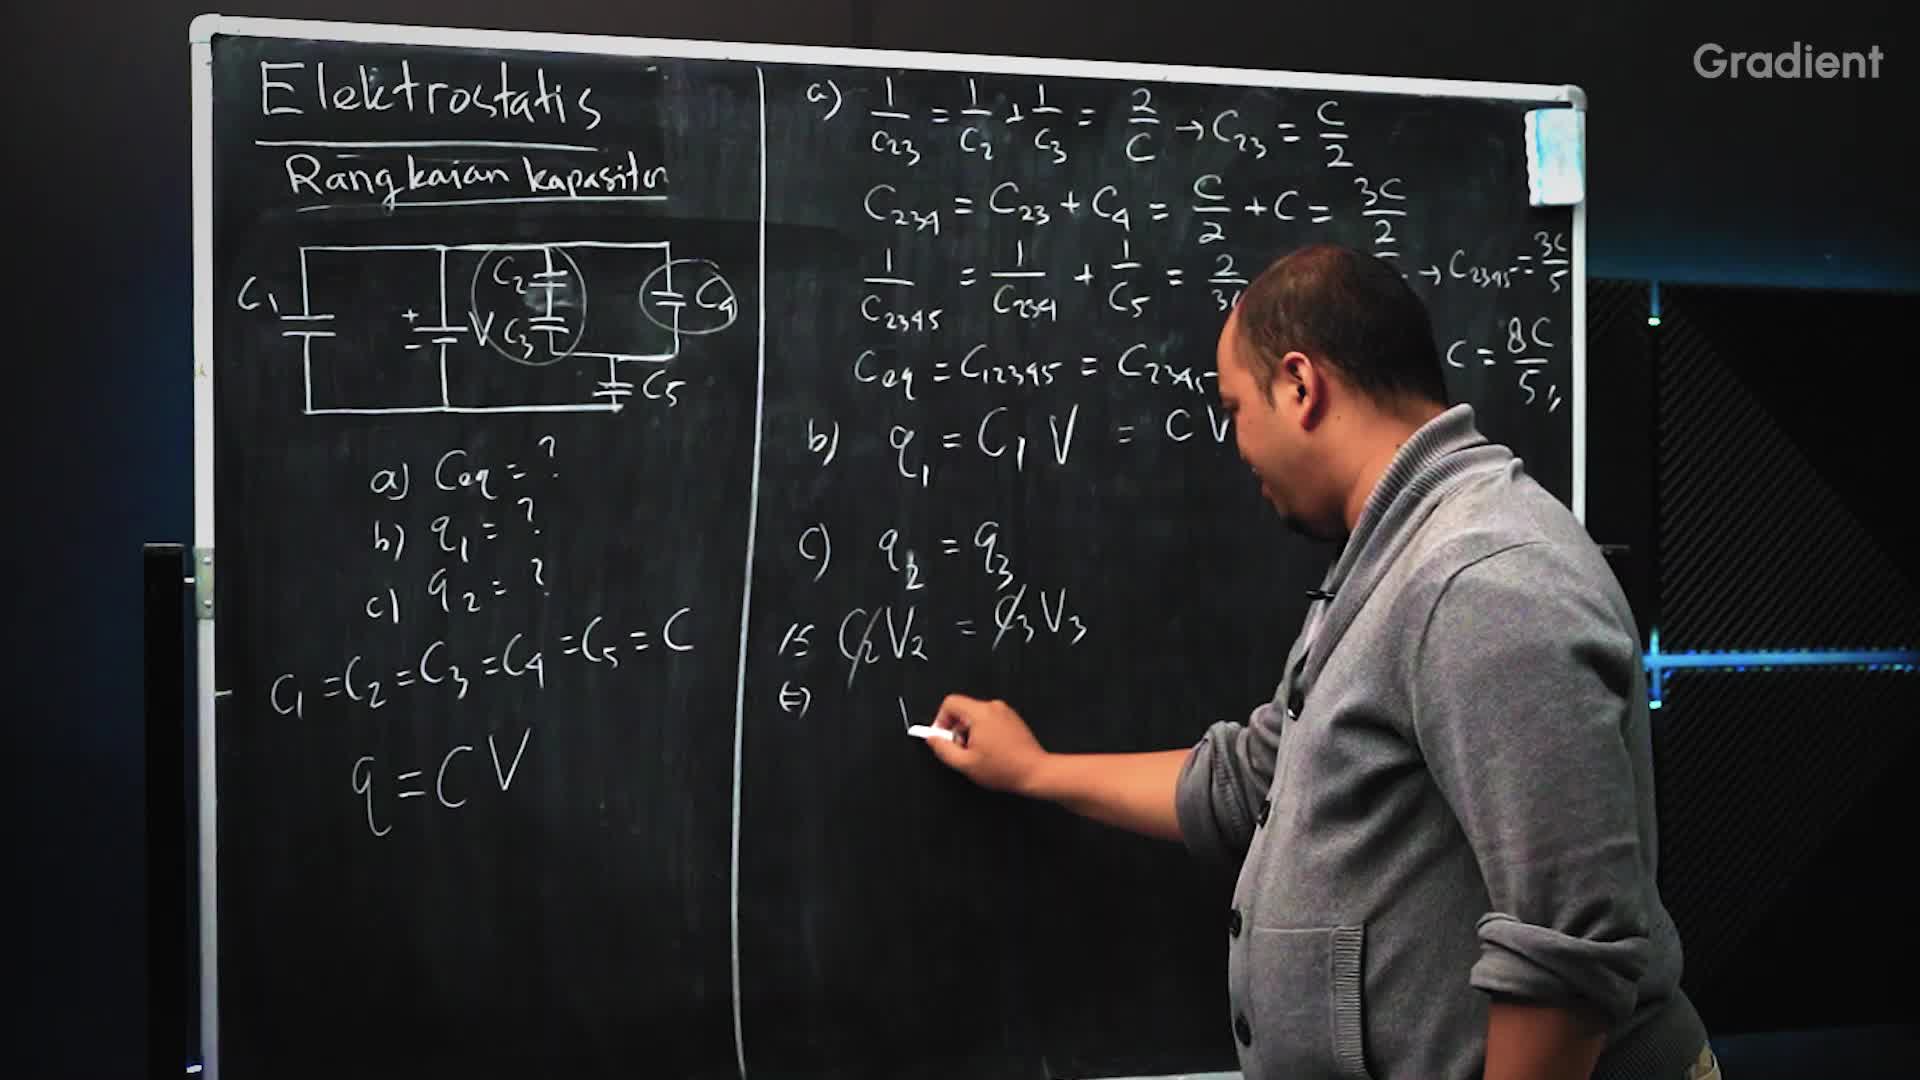 Gradient
Elektrostatis
Rangkaian kapasitor
C1 + - V C2 C3 C4 C5
a) Ceq = ?
b) q1 = ?
c) q2 = ?
C1 = C2 = C3 = C4 = C5 = C
q = CV
a) 1/C23 = 1/C2 + 1/C3 = 2/C → C23 = C/2
C234 = C23 + C4 = C/2 + C = 3C/2
1/C2345 = 1/C234 + 1/C5 = 2/3C → C2345 = 3C/5
Ceq = C12345 = C2345 C = 8C/5
b) q1 = C1 V = CV
c) q2 = q3
C2V2 = C3V3